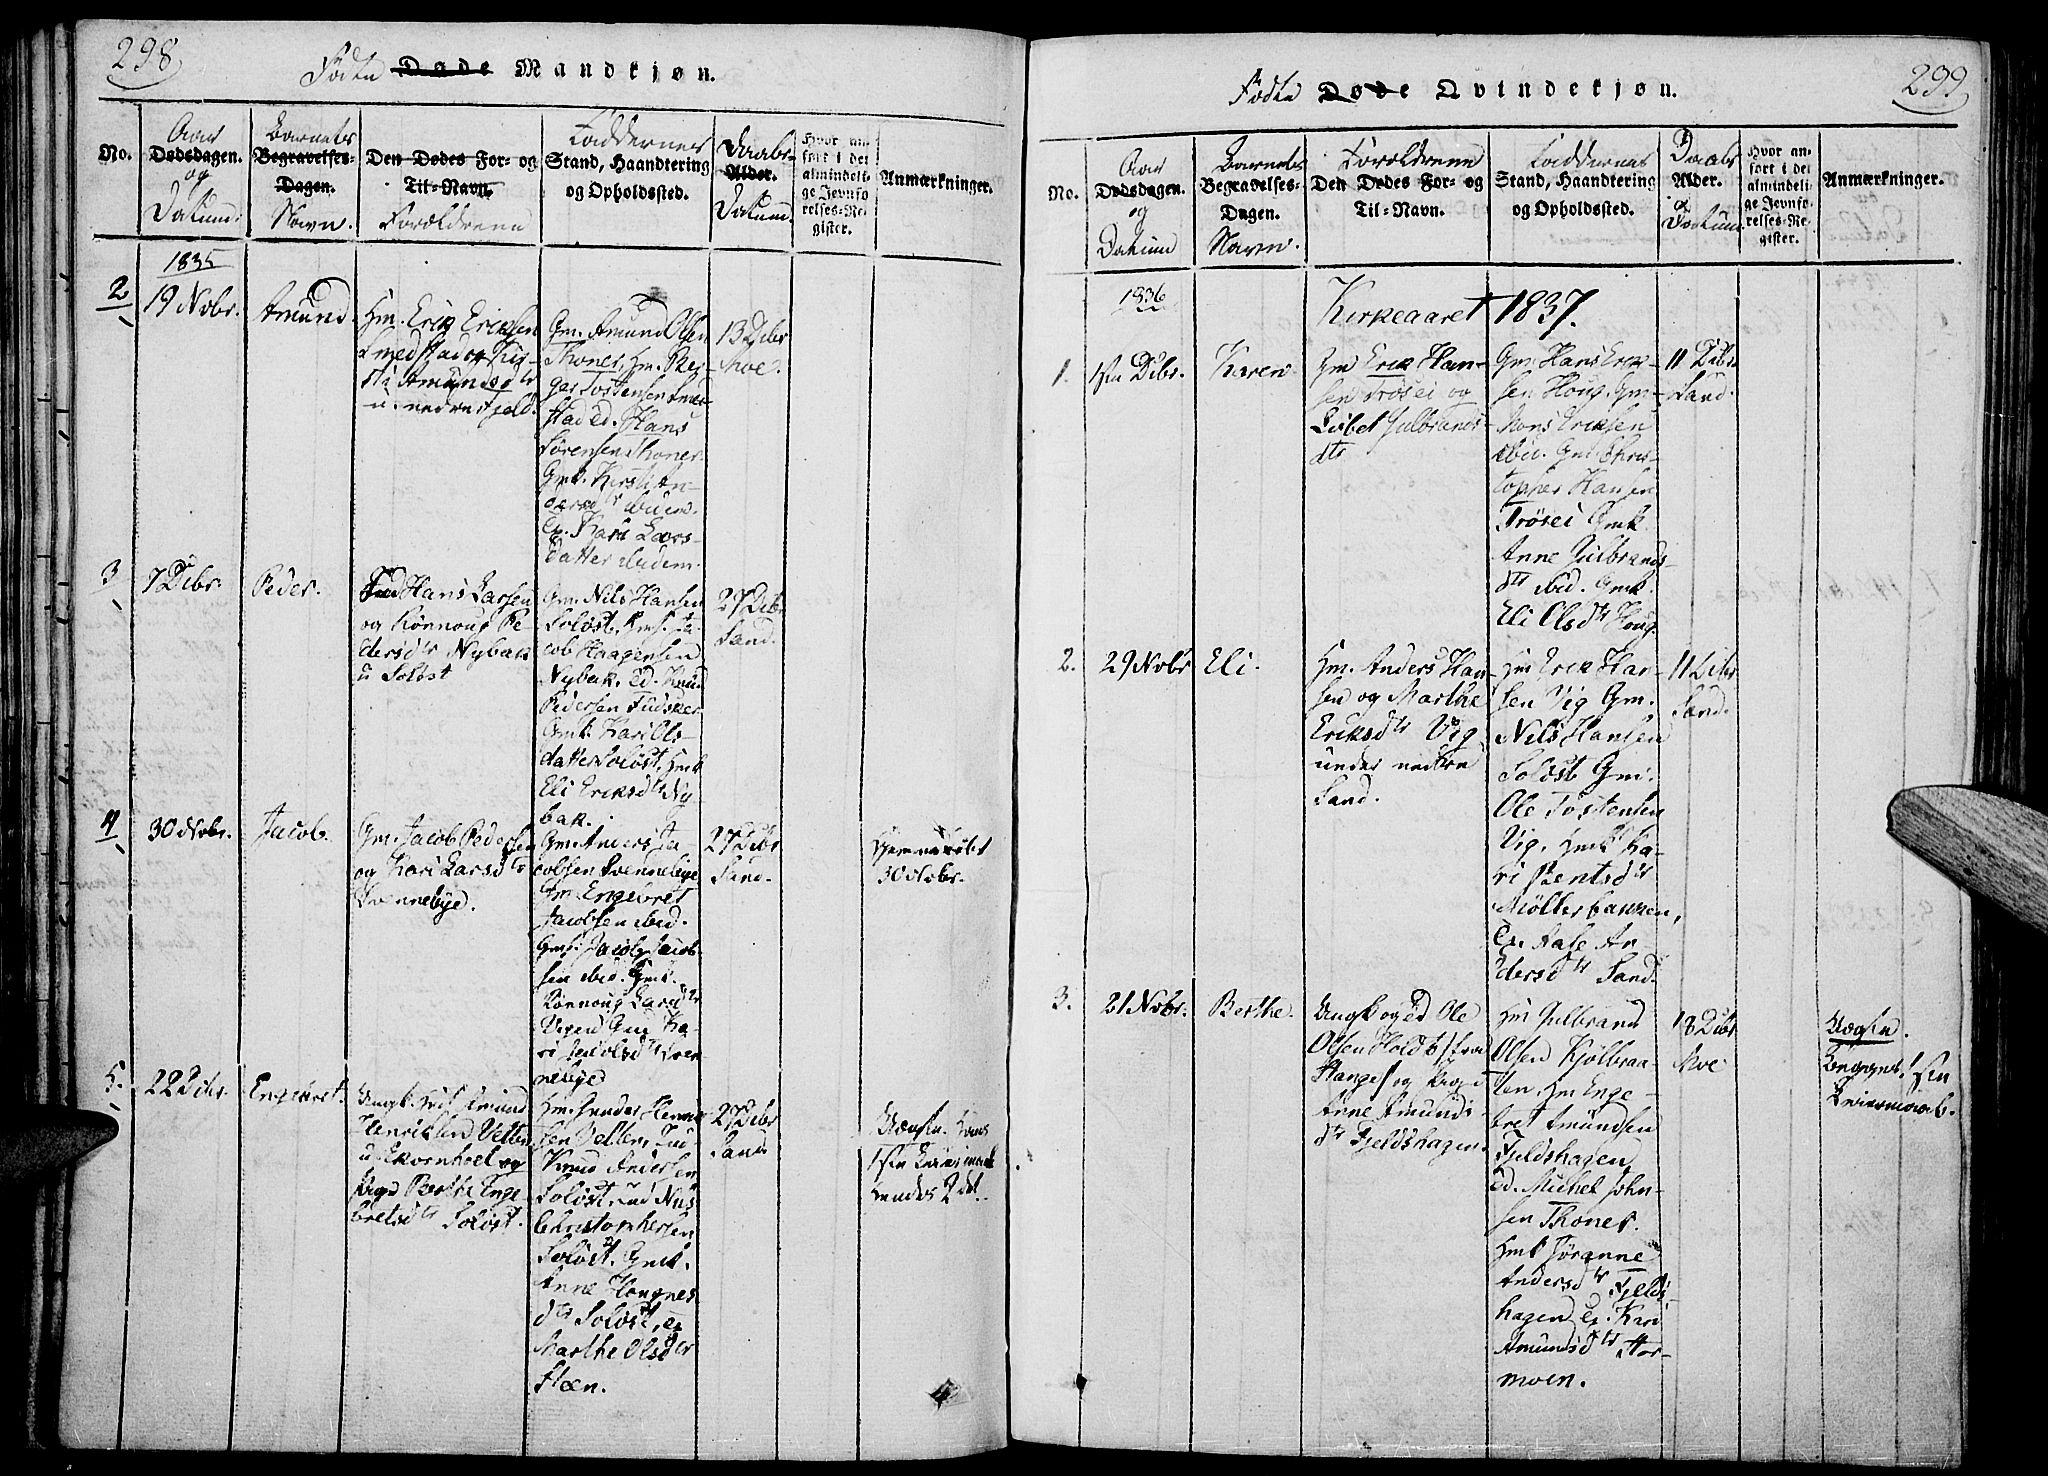 298
Fødte Døde Mandkjøn.
No.
Aar
Dødsdagen.
og
Datum.
Barnets
Begravelses-
Dagen.
Navn.
Den Dødes For- og
Til-Navn.
Forældrene
Faddernes
Stand, Haandtering
og Opholdssted.
Daabs-
Alder.
Datum.
Hvor an-
ført i det
almindeli-
ge Jevnfø-
relses-Re-
gister.
Anmærkninger.
1835
2
19 Novbr.
Amund.
Hm. Erik Eriksen
Smedstad og Kir-
sti Amundsdtr
u. nedre Fjeld.
Gm. Amund Olsen
Thoner, Hm. Bør-
ger Tostensen Smed-
stad Ed. Hans
Sørensen Thoner.
Gmk. Kirsti An-
dersdtr ibidem.
Ep. Kari Lars-
datter ibidem.
13 Dcbr
Moe.
3
7 Dcbr.
Peder.
Hans Larsen
og Rønnoug Pe-
dersdtr Nybak
u Soløst
Gm. Nils Hansen
Soløst, Hm. Ja-
cob Haagensen
Nybak. Ed. Knud
Pedersen Fudsker
Gmk. Kari Ols-
datter Soløst, Hmk
Eli Eriksdtr Ny-
bak.
27 Dcbr
Sand.
4
30 Novbr.
Jacob.
Gm. Jacob Pedersen
og Kari Larsdtr
Svennebye.
Gm. Anders Ja-
cobsen Svennebye
Gm. Engebret
Jacobsen ibid.
Gms. Jacob Jacob-
sen ibid. Gmk.
Rønnoug Larsdtr
Vigerd Gmd Ka-
ri Jacobsdtr Sven-
nebye
27 Dcbr
Sand.
Hjemmedøbt
30 Novbr.
5.
22 Dcbr.
Engebret.
Ungk. Amund
Henriksen Velten
u. Ekornhoel og
Pige Berthe Enge-
bretsdtr Soløst.
Hm. Gunder Henrik-
sen Velten, Ed
Knud Andersen
Soløst, Ed Nils
Christophersen
Soløst. Gmk.
Anne Hougnes
dtr Soløst, Ep
Marthe Olsdtr
Steen.
27 Dcbr
Sand
Uægte. Hans
1ste Leiermaal
hendes 2det.
299
Fødte Døde Qvindekjøn.
No.
Aar
Dødsdagen.
og
Datum
Barnets
Begravelses-
Dagen.
Navn.
Forældrene
Den Dødes For- og
Til-Navn.
Faddernes
Stand, Haandtering
og Opholdssted.
Daabs
Alder.
&
Datum.
Hvor an-
ført i det
almindeli-
ge Jevnfø-
relses-Re-
gister.
Anmærkninger.
1836
Kirkeaaret 1837.
1.
1ste Dcbr.
Karen.
Gm Erik Han-
sen Trøsei og
Lisbet Gulbrands-
dtr
Gm. Hans Erik-
sen Houg. Gm-
Mons Eriksen
ibid. Gm. Chris-
topper Hansen
Trøsei Gmk
Anne Gulbrands-
dtr ibid. Gmk.
Eli Olsdtr Houg.
11 Dcbr.
Sand.
2.
29 Novbr
Eli.
Hm. Anders Han-
sen og Marthe
Eriksdtr Vig
under nedtre
Sand.
Hm Erik Han-
sen Vig Gm.
Nils Hansen
Soløst Gm.
Ole Tostensen
Vig, Hmk Ka-
ri Bentsdtr
Møllerbakken,
Ep. Aase An-
dersdtr Sand.
11 Dcbr
Sand.
3.
21 Novbr.
Berthe.
Ungk og Ed Ole
Olsen Holdt (fra
Stange) og Pige
Anne Amunds-
dtr Fjeldshagen.
Hm Gulbrand
Olsen Kjølbran-
ten, Hm Enge-
bret Amundsen
Fjeldshagen
Ed. Michel John-
sen Thoner.
Hmk Jøranne
Andersdtr Fjelds-
hagen Ep. Kari
Amundsdtr Stor-
moen.
18 Dcbr
Moe
Uægte.
Begges 1ste
Leiermaal.